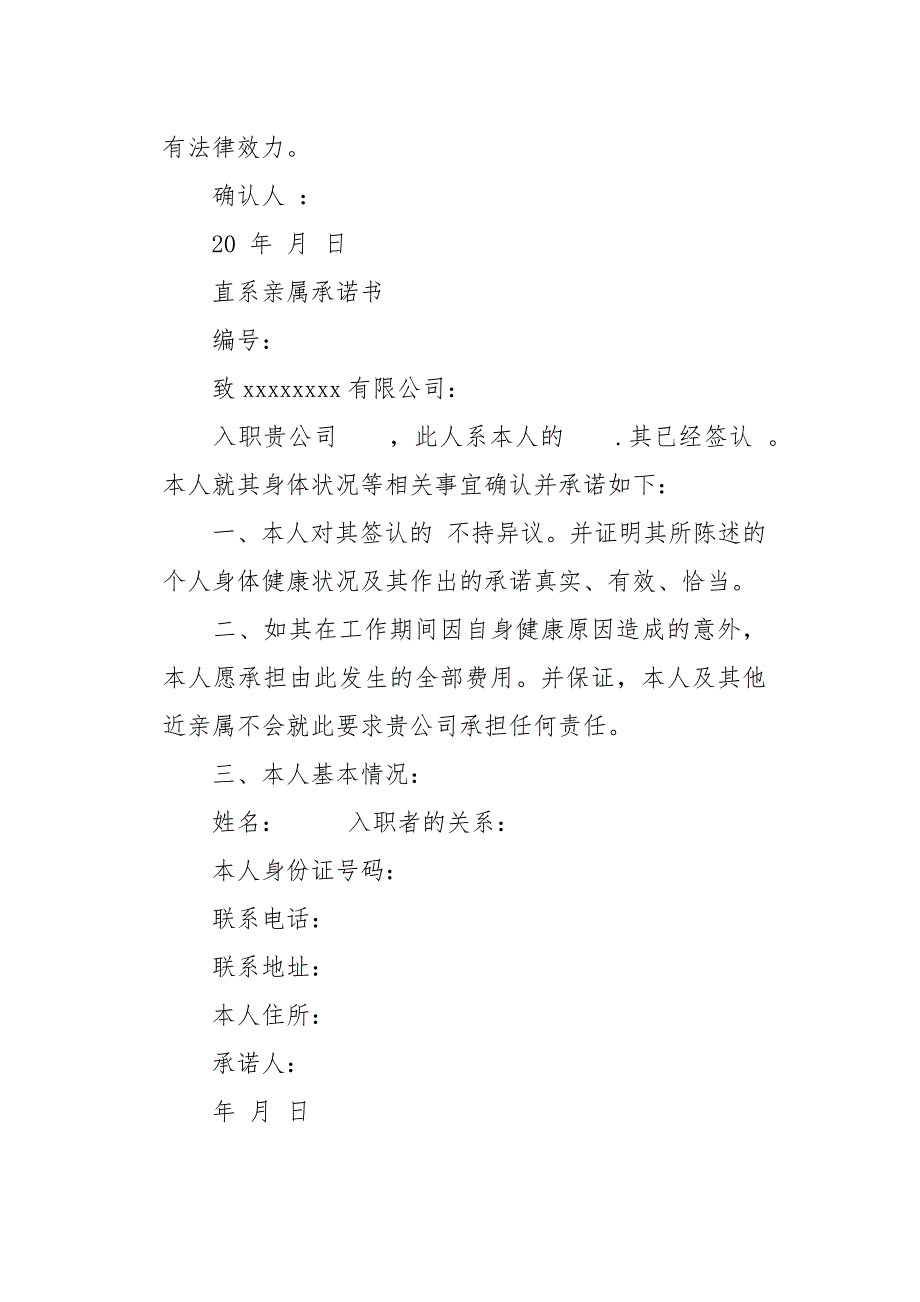 有法律效力。
确认人 ：
20 年 月 日
直系亲属承诺书
编号：
致 xxxxxxxx 有限公司：
入职贵公司 ，此人系本人的 .其已经签认 。
本人就其身体状况等相关事宜确认并承诺如下：
一、本人对其签认的 不持异议。并证明其所陈述的
个人身体健康状况及其作出的承诺真实、有效、恰当。
二、如其在工作期间因自身健康原因造成的意外，
本人愿承担由此发生的全部费用。并保证，本人及其他
近亲属不会就此要求贵公司承担任何责任。
三、本人基本情况：
姓名： 入职者的关系：
本人身份证号码：
联系电话：
联系地址：
本人住所：
承诺人：
年 月 日